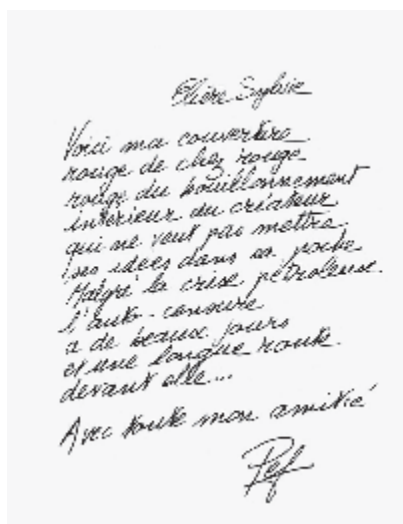 Chère Sylvie
Voici ma couverture
rouge de chez rouge
rouge du bouillonnement
intérieur du créateur
qui ne veut pas mettre
ses idées dans sa poche
Malgré la crise pétroleuse
l'auto-censure
a de beaux jours
et une longue route
devant elle...
Avec toute mon amitié
Pef